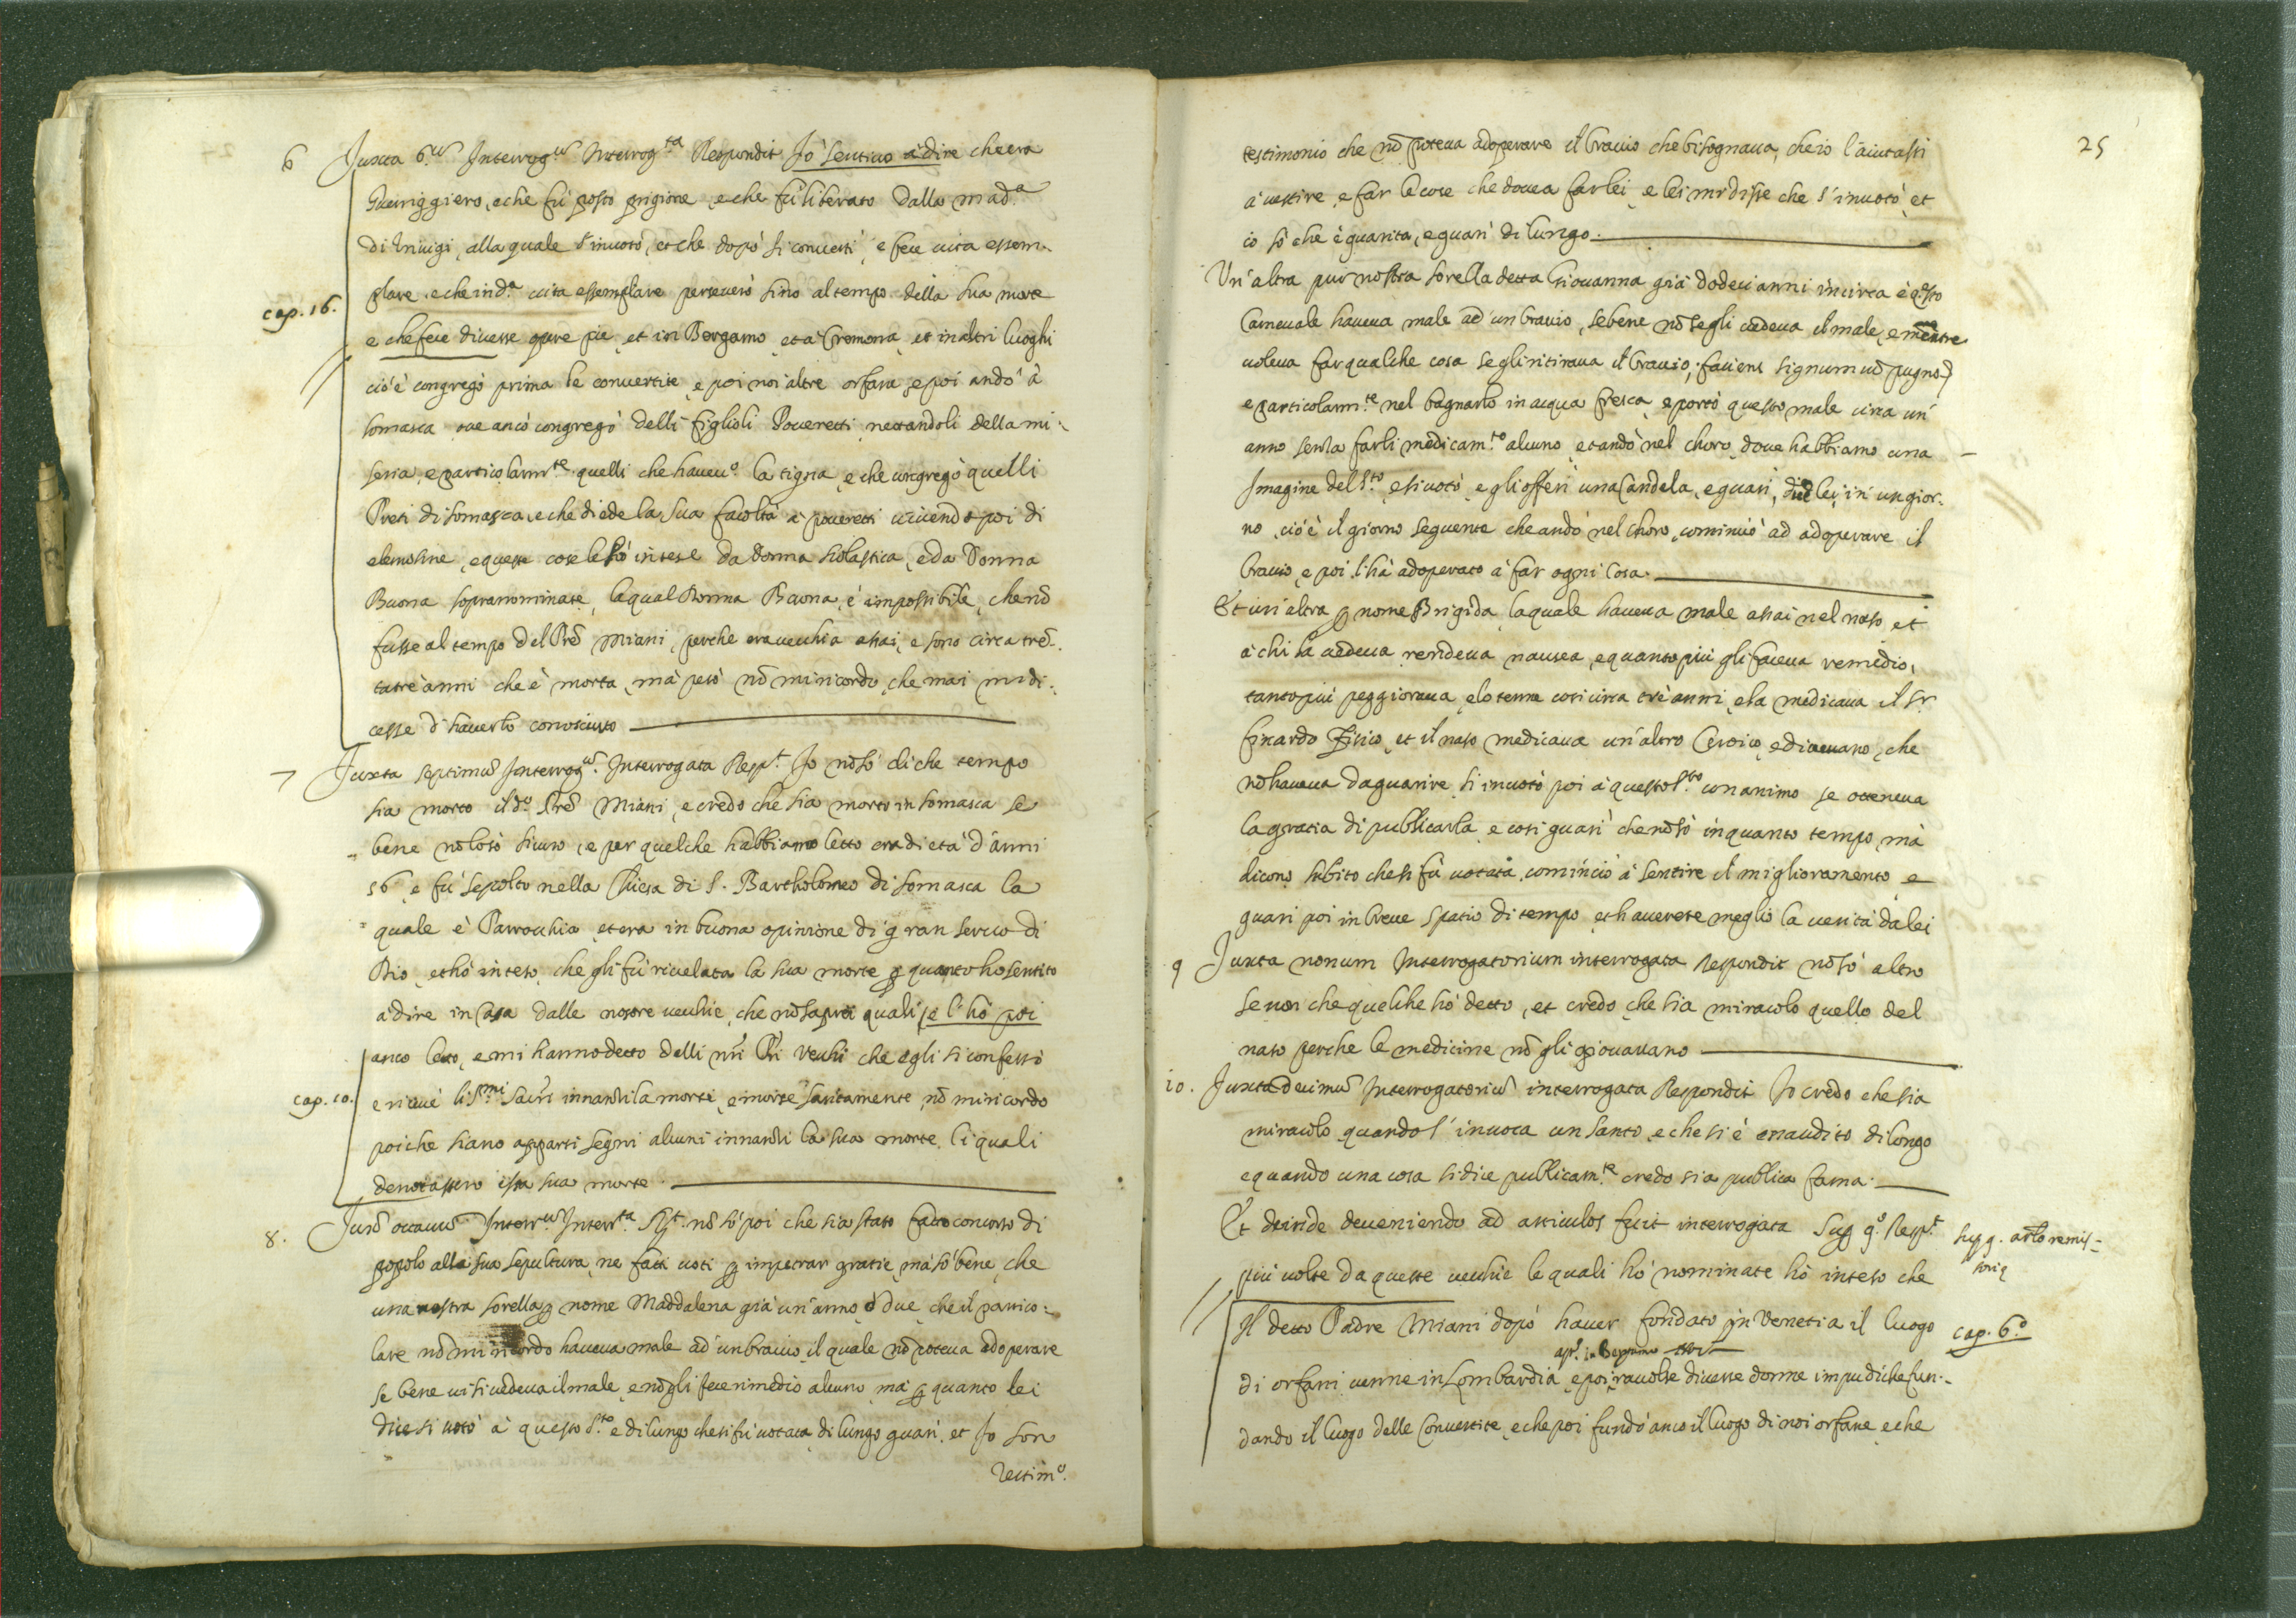 6 Juxta 6.um Interrog.um Interrog.ta Respondit Jo sentivo à dire che era
Guerriggiero, e che fù posto prigione e che fù liberato dalla mad.a
di Trivigi, alla quale s'invotò, et che dopò si convertì, e fece vita essem-
cap. 16.
plare e che in d.a vita essemplare perseverò sino al tempo della sua morte
e che fece diverse opere pie, et in Bergamo, et à Cremona, et in altri luoghi
cio è congregò prima le convertite, e poi noi altre orfane, e poi andò à
somasca ove ancò congregò delli figlioli Poveretti, nettandoli della mi-
seria, e particolarm.te quelli che havev.o la tigna, e che congregò quelli
Preti di somasca, e che diede la sua facoltà à poveretti vivendo poi di
elemosine, e queste cose le hò intese da donna scolastica, e da Donna
Buona sopranominate, la qual Donna Buona, è impossibile, che nõ
fusse al tempo del Prẽ Miani, perche era vecchia assai, e sono circa trẽ-
tatre anni che è morta, mà però nõ mi ricordo, che mai mi di-
cesse d'haverlo conosciuto
7 Juxta septimũ Interrog.ũ Interrogata Resp.t Jo nõ sò di che tempo
sia morto il d.o Prẽ Miani, e credo che sia morto in somasca se
bene nõ lo sò sicuro, e per quel che habbiamo letto era di età d'anni
56 e fù sepolto nella Chiesa di S. Bartholomeo di somasca la
quale è Parrochia, et era in buona opinione di gran servo di
Dio, et hò inteso, che gli fù rivelata la sua morte p quanto ho sentito
à dire in Casa dalle nostre vecchie, che nõ saprei quali, e l'hò poi
anco letto, e mi hanno detto delli nri Pri Vechi che egli si confessò
cap. 10.
e ricevè li S.mi Sacri innanti la morte, e morse santamente, nõ mi ricordo
poi che siano apparsi segni alcuni innanti la sua morte, li quali
denotassero essa sua morte.
8. Juxᵃ octavũ Interr.um Interr.ta Rp.t nõ sò poi che sia stato fatto concorso di
popolo alla sua sepultura, ne fatti voti p impetrar gratie, mà sò bene, che
una nostra sorella p nome Maddalena già un'anno, ò due, che il partico-
lare nõ mi ricordo haveva male ad un bracio, il quale nõ poteva adoperare
se bene vi si vedeva il male, e nõ gli fece rimedio alcuno, mà p quanto lei
dice si votò à questo S.to e di lungo che si fù votata, di lungo guarì, et Jo son
Testim.o
25
testimonio che nõ poteva adoperare il bracio che bisognava, che io l'aiutassi
à vestire, e far le cose che dovea far lei, e lei mi disse che s'invotò, et
io sò che è guarita, e guarì di lungo.
Un'altra pur nostra sorella detta Giovanna già dodeci anni incirca è q.sto
Carnevale haveva male ad un bracio, sebene nõ segli vedeva il male, e mẽtre
voleva far qualche cosa segli ritirava il bracio, faciens signum cũ pugno
e particolarm.te nel bagnarlo in acqua fresca, e portò questo male circa un'
anno senza farli medicam.to alcuno, et andò nel choro, dove habbiamo una
Imagine del S.to, e si votò, e gli offerì una Candela, e guarì, dice lei, in un gior-
no, cio è il giorno seguente che andò nel choro, cominciò ad adoperare il
bracio, e poi l'hà adoperato à far ogni cosa.
Et un'altra p nome Brigida, la quale haveva male assai nel naso, et
à chi la vedeva rendeva nausea, e quanto più gli faceva remedio,
tanto più peggiorava, e lo tenne così circa trè anni, e la medicava il Sr
Finardo Fisico, et il naso medicava un'altro Ceroico, e dicevano, che
nõ haveva da guarire, si invotò poi à questo S.to con animo se otteneva
la gratia di publicarla, e così guarì che nõ sò in quanto tempo, mà
dicono subito che si fù votata, cominciò à sentire il miglioramento, e
guarì poi in breve spatio di tempo, et haverete meglio la verità da lei
9 Juxta nonum Interrogatorium interrogata Respondit nõ sò altro
se non che quel che hò detto, et credo, che sia miracolo quello del
naso perche le medicine nõ gli giovavano
10. Juxta decimũ Interrogatoriũ interrogata Respondit Jo credo che sia
miracolo quando s'invoca un santo, e che si è essaudito di longo
e quando una cosa si dice publicam.te credo sia publica fama.
Et deinde deveniendo ad articulos fuit interrogata Sup q.o Resp.t
sup q. arto remis-
soriq
più volte da queste vecchie le quali hò nominate hò inteso che
Il detto Padre Miani dopò haver fondato in Venetia il luogo
cap. 6.o
di orfani venne in Lombardia, e poi, ravolse diverse donne impudiche fun-
dando il luogo delle Convertite, e che poi fundò anco il luogo di noi orfane, e che